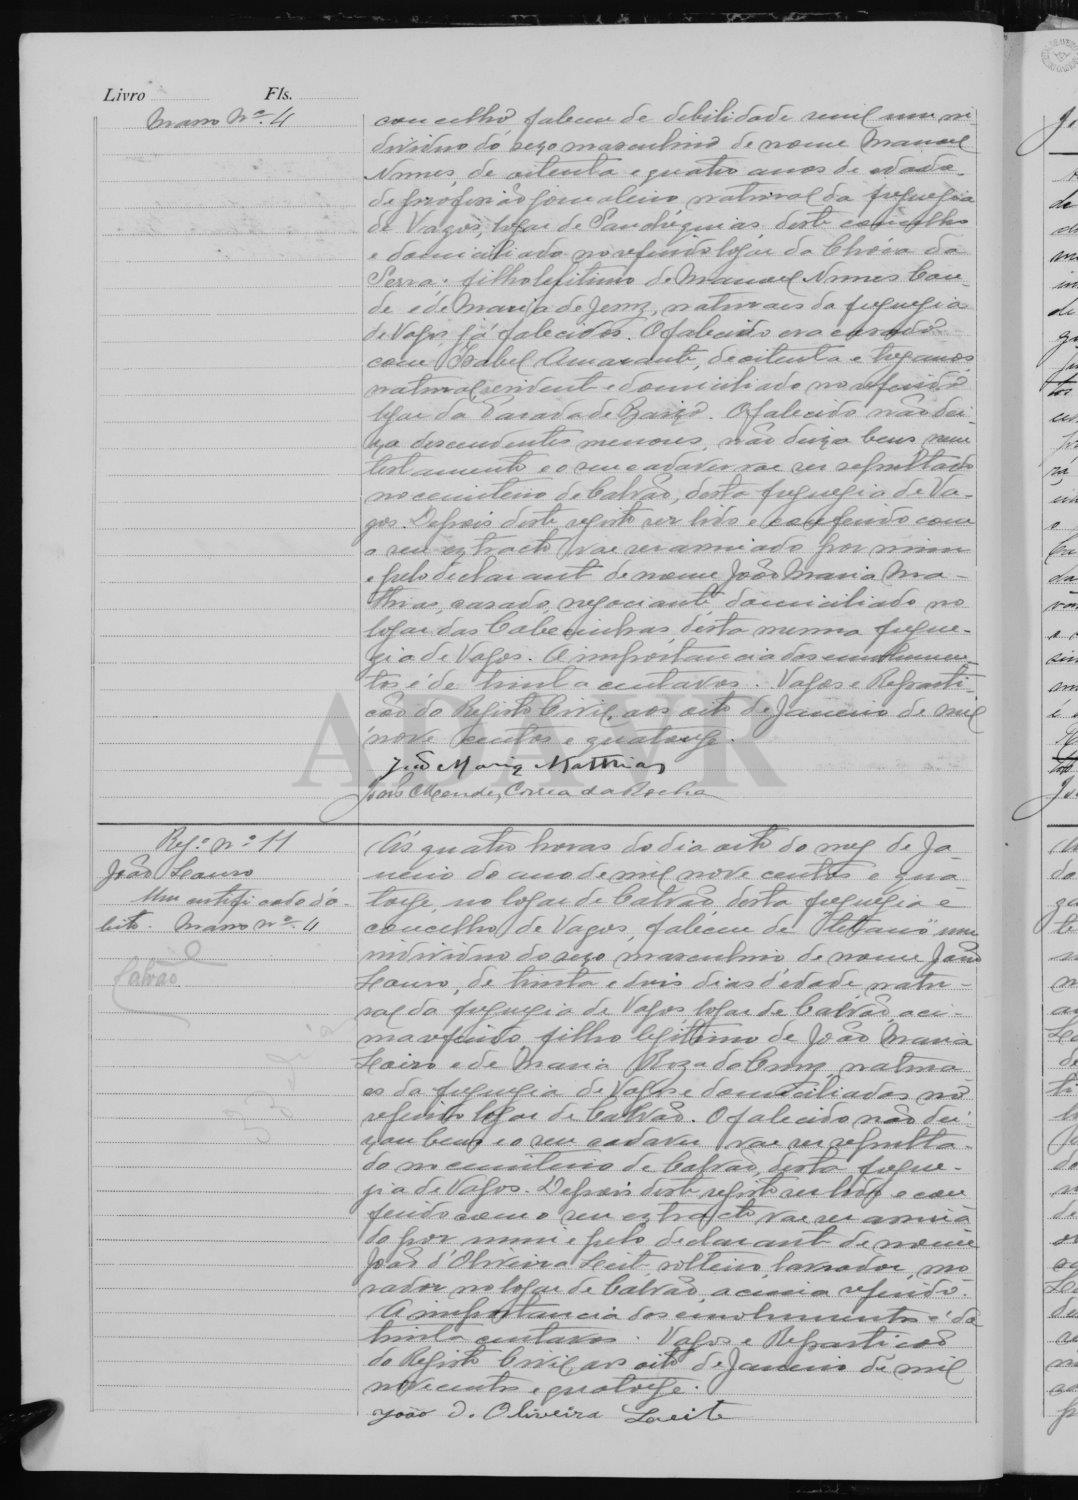 Livro Fls.
Masso Nº 4
concelho, faleceu de debilidade senil um in
dividuo do sexo masculino de nome Manuel
Nunes, de oitenta e quatro anos de edade,
de profissão jornaleiro, natural da freguezia
de Vagos, lugar de deste concelho
e domiciliado no referido logar da Chóza da
Serra, filho legitimo de Manuel Nunes Con
de e de Maria de Jesus, naturaes da freguezia
de Vagos, já falecidos. O falecido era casado
com Izabel Amarante, de oitenta e tres anos,
natural, rendent e domiciliado no referido
logar da O falecido não dei
xa descendentes menores, não deixa bens, nem
testamento e o seu cadaver vae ser sepultado
no cemiterio de Calvão, desta freguezia de Va-
gos. Depois deste registo ser lido e conferido com
o seu extracto vae ser assinado por mim
e pelo declarante de nome João Maria Ma-
thias, casado, negociante, domiciliado no
logar das Cabecinhas, desta mesma fregue-
zia de Vagos. A importancia dos emolumen-
tos é de trinta centavos. Vagos e Reparti-
ção do Registo Civil, aos oito de Janeiro de mil
nove centos e quatorze.
João Maria Matthias
João Mendes Correa da Rocha
Regº nº 11
João Lauro
Um certificado d'o-
bito. Masso nº 4
Calvão
A's quatro horas do dia oito do mez de Ja-
neiro do ano de mil nove centos e qua-
torze, no logar de Calvão, desta freguezia e
concelho de Vagos, faleceu de "tetano" um
individuo do sexo masculino de nome João
Lauro, de trinta e dois dias d'edade, natu-
ral da freguezia de Vagos logar de Calvão, aci-
ma referido, filho legitimo de João Maria
Lairo e de Maria Roza da Cruz, natura
es da freguezia de Vagos e domiciliados no
referido logar de Calvão. O falecido não dei-
xou bens e o seu cadaver vae ser sepulta-
do no cemiterio de Calvão, desta fregue-
zia de Vagos. Depois deste registo ser lido e con-
ferido com o seu extracto vae ser assina-
do por mim e pelo declarante de nome
João d'Oliveira Leite solteiro, lavrador, mo-
rador no logar de Calvão, acima referido.
A importancia dos emolumentos é de
trinta centavos. Vagos e Repartição
do Registo Civil, aos oito de Janeiro de mil
nove centos e quatorze.
João d. Oliveira Leite
ADAVR